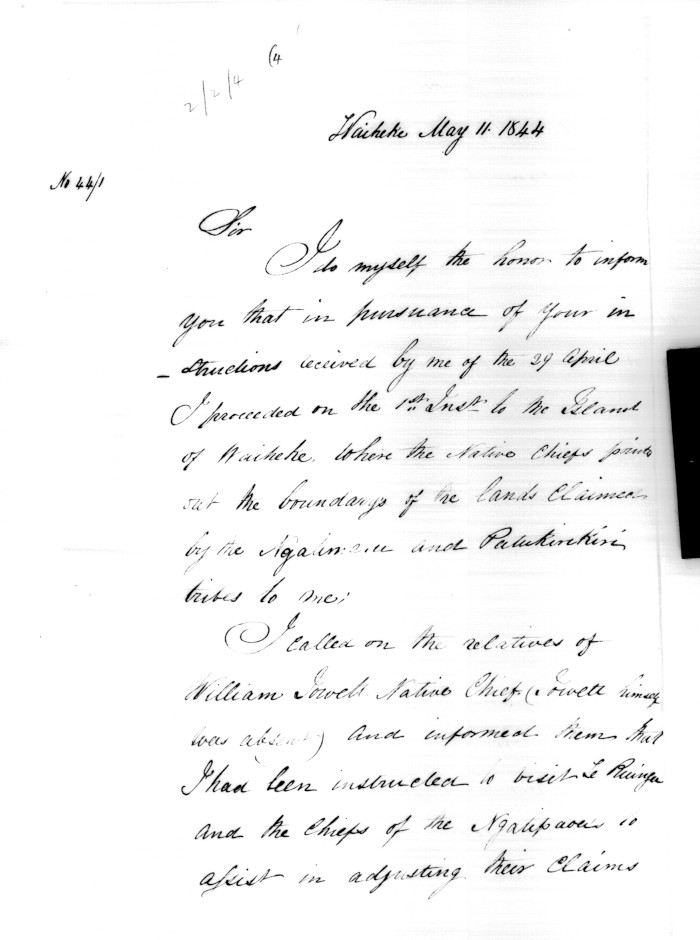 (4
2/2/4
Waiheke May 11. 1844
No 44/1
Sir
I do myself the honor to inform
you that in pursuance of your in
- structions received by me of the 29 April
I proceeded on the 1st Inst to the Island
of Waiheke. Where the Native Chiefs
out the boundarys of the lands Claimed
by the Ngatimaru and Patukirikiri
tribes to me;
I called on the relatives of
William Jowell Native Chief (Jowell himself
was absent) and informed them that
I had been instructed to visit Te Ruinga
and the Chiefs of the Ngatipaoa to
assist in adjusting their Claims